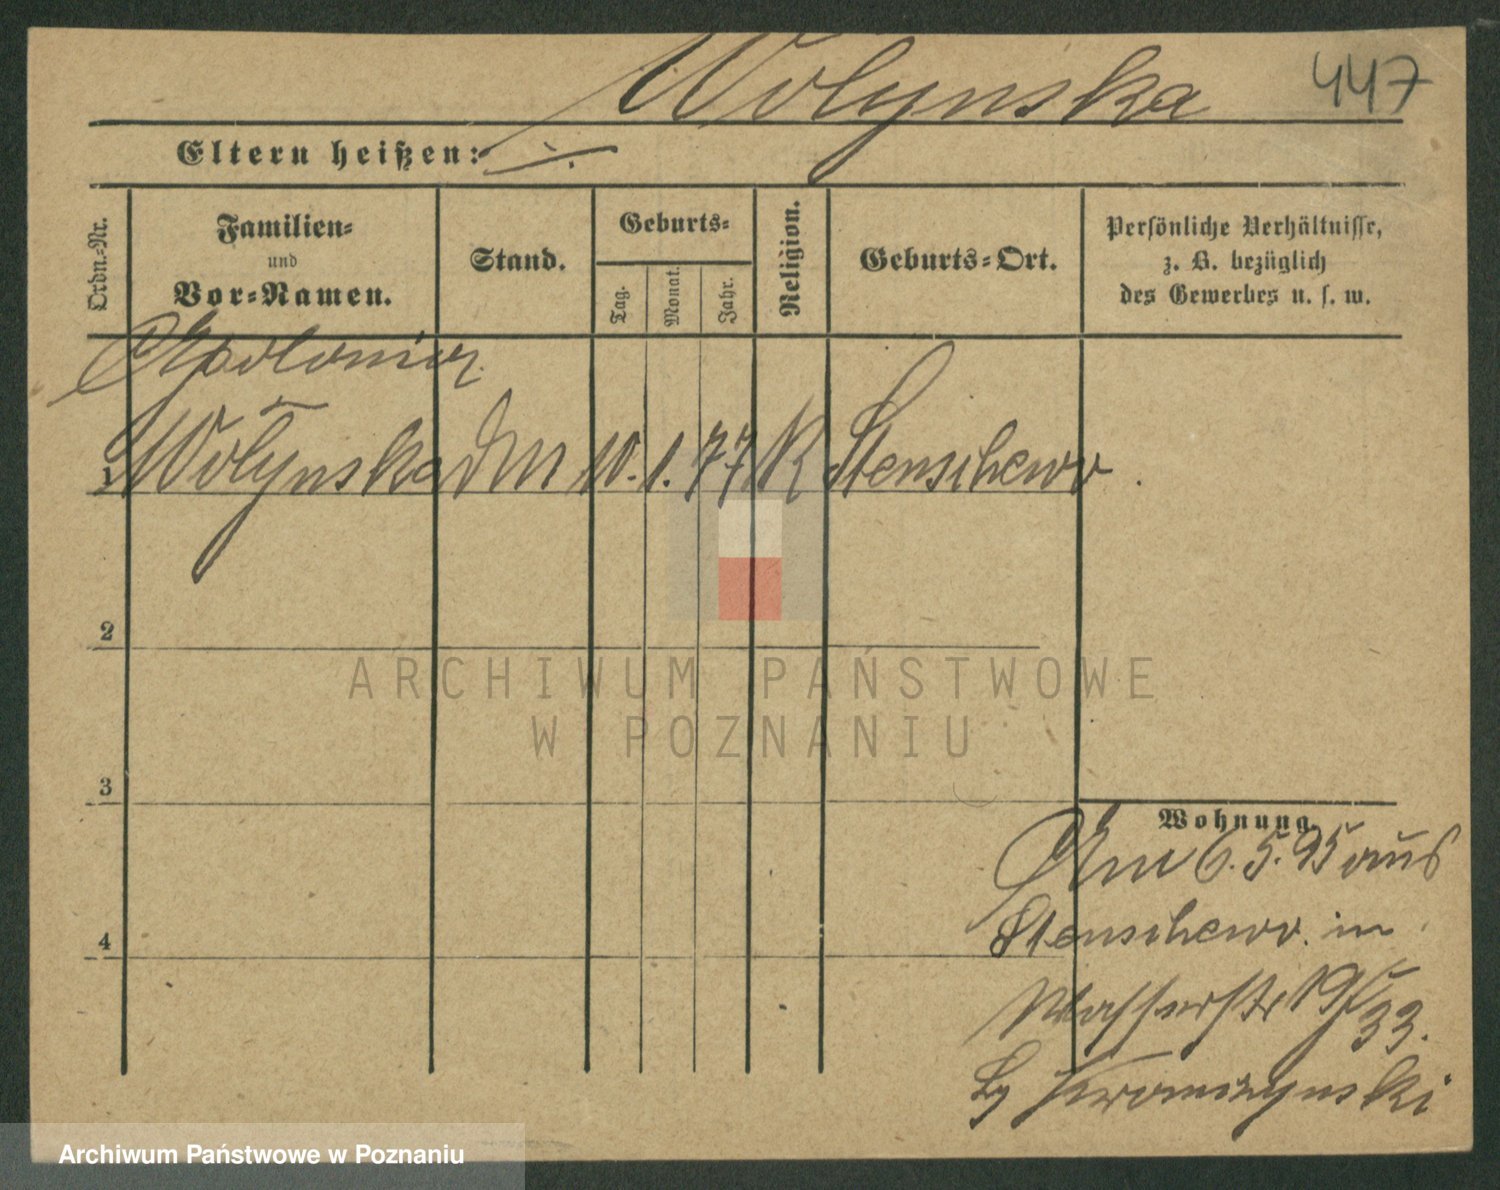 Wolynska 447
Eltern heißen: ./.
Ordn.-Nr.
Familien-
und
Vor-Namen.
Stand.
Geburts-
Tag.
Monat.
Jahr.
Religion.
Geburts-Ort.
Persönliche Verhältnisse,
z. B. bezüglich
des Gewerbes u. s. w.
Apolonia
1 Wolynska 10. 1. 77 K Stenschewo
2
3
4
Wohnung
Am 6. 5. 95 aus
Stenschewo in
Wasserstr 19/33.
ARCHIWUM PAŃSTWOWE
W POZNANIU
Archiwum Państwowe w Poznaniu